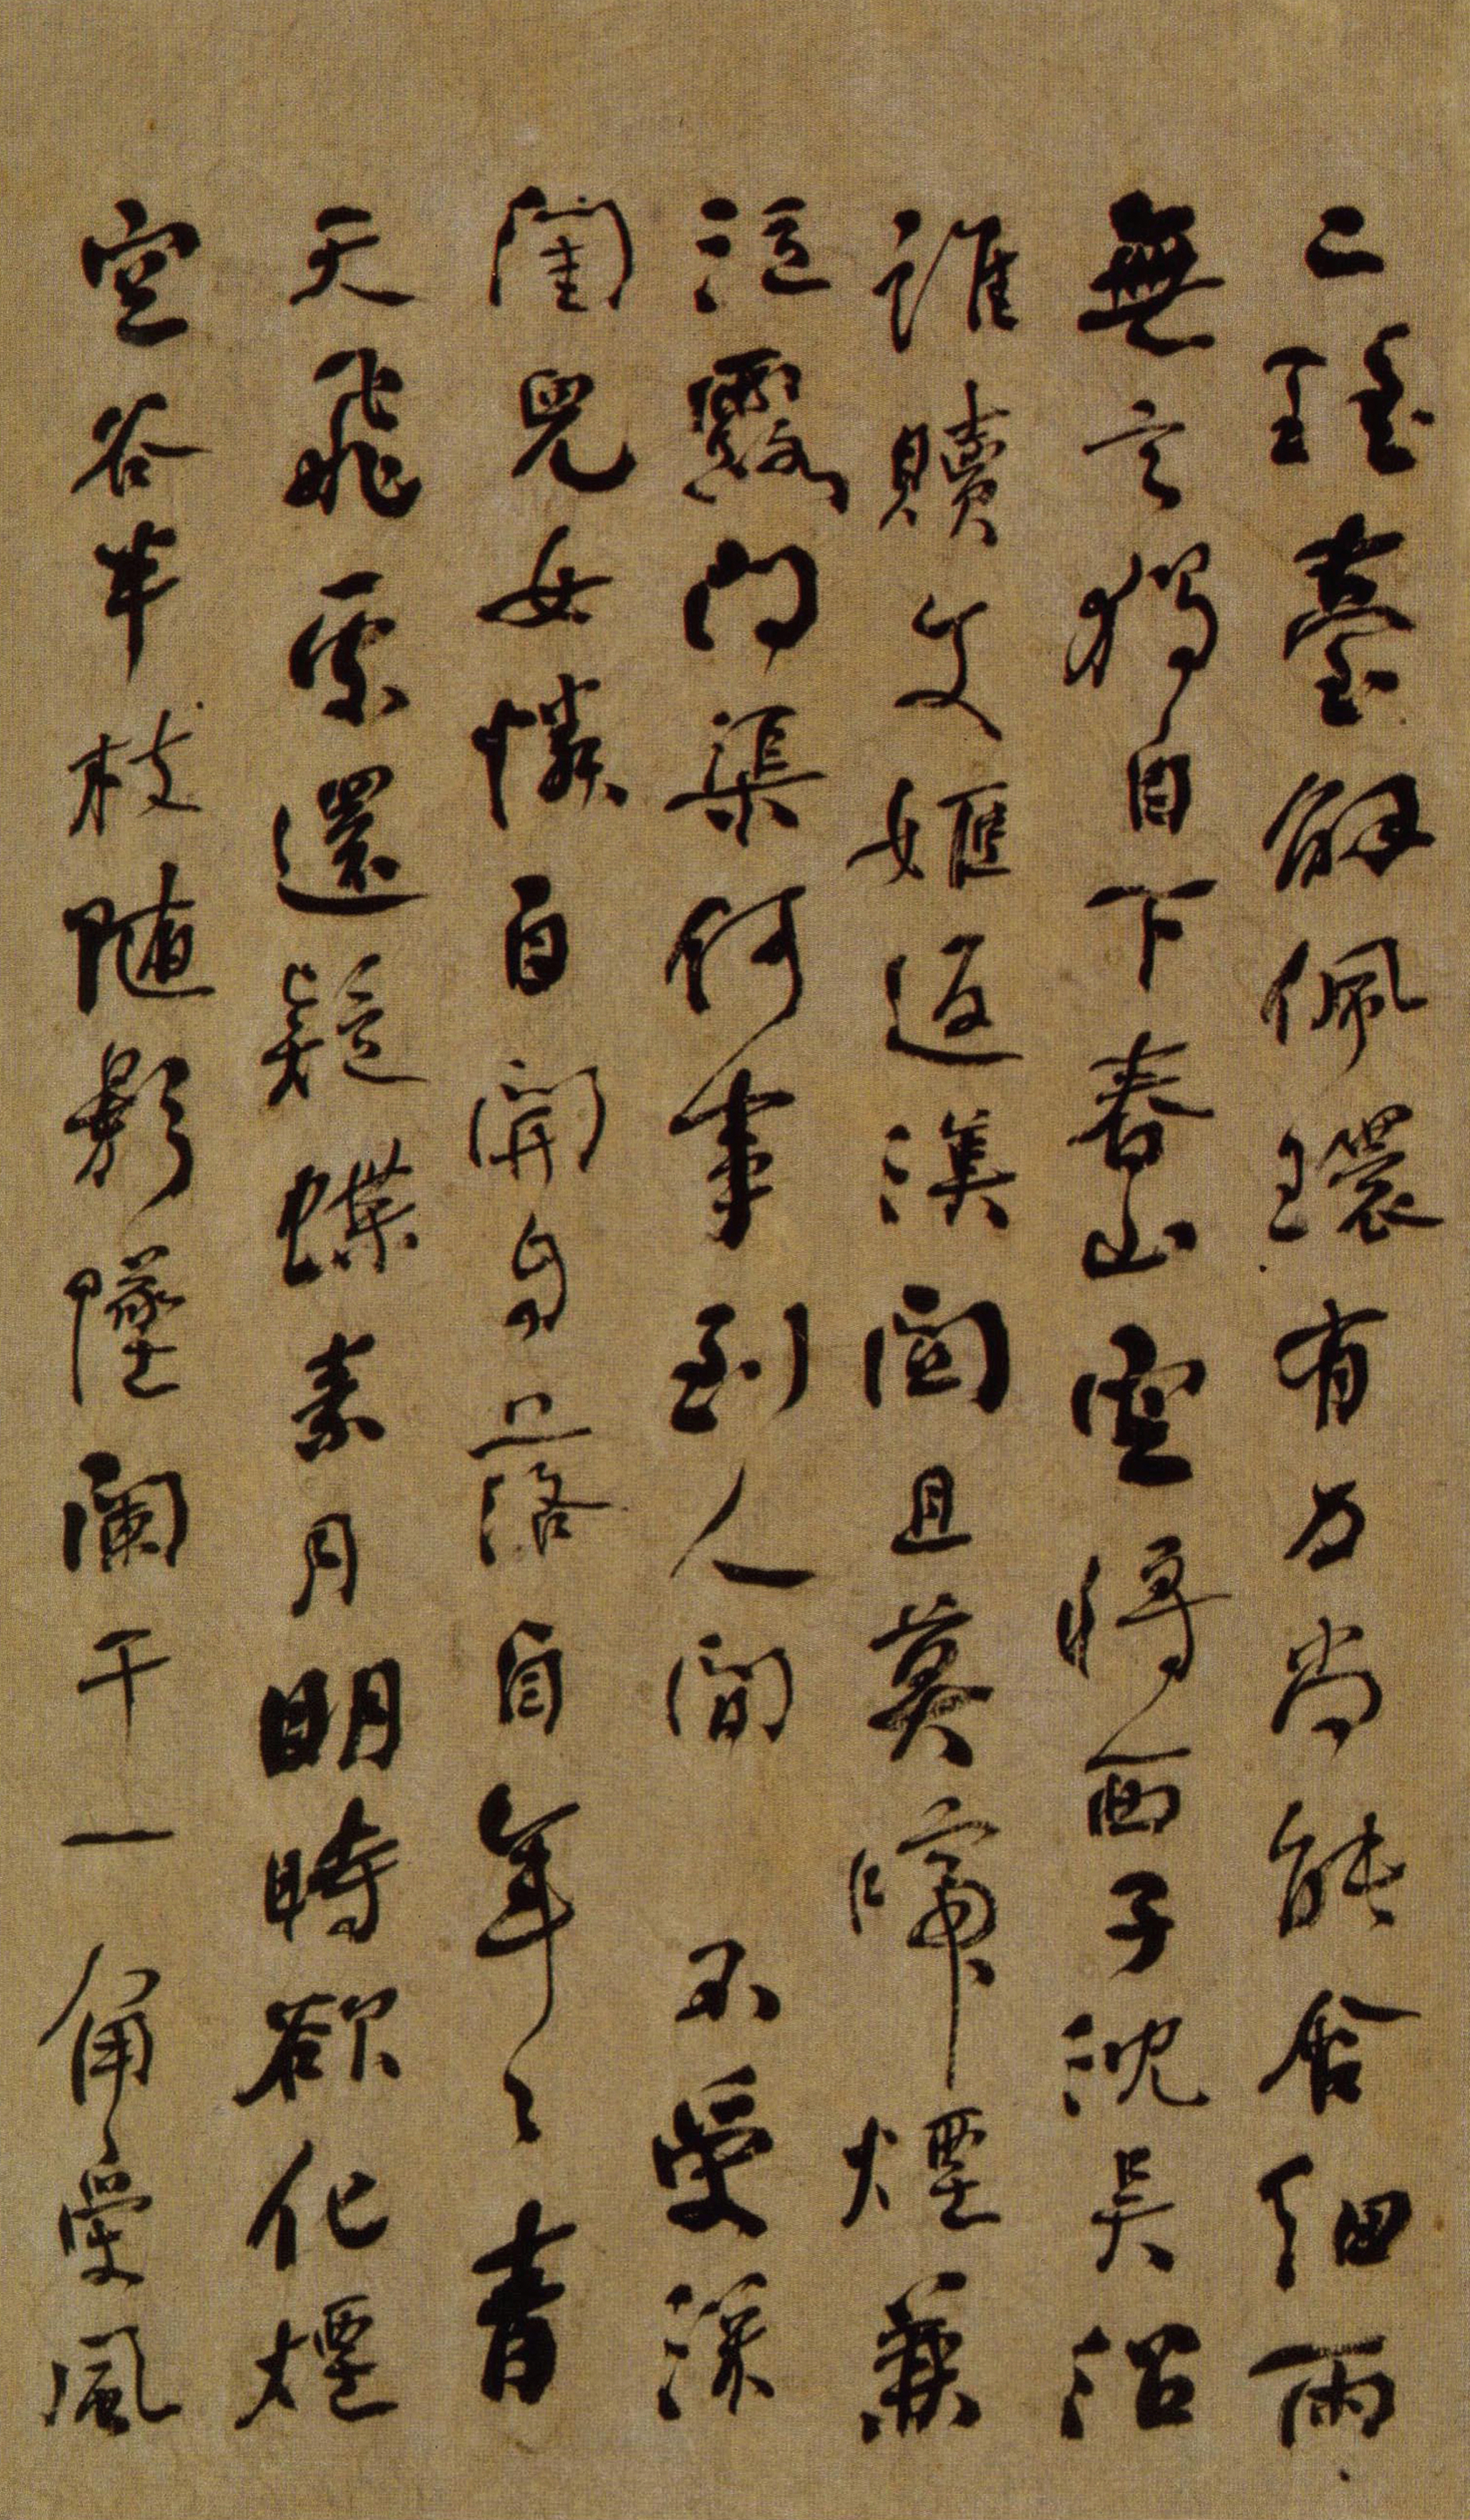 二瑤臺解佩環有力尚能含細雨
無言獨自下春山空將西子沈吳沼
誰贖文姬返漢關且莫啼煙兼
泣露問渠何事到人間 不受深
閨兒女憐自開自落自年〻青
天飛處還疑蝶素月明時欲化煙
空谷半枝隨影墜闌干一角受風